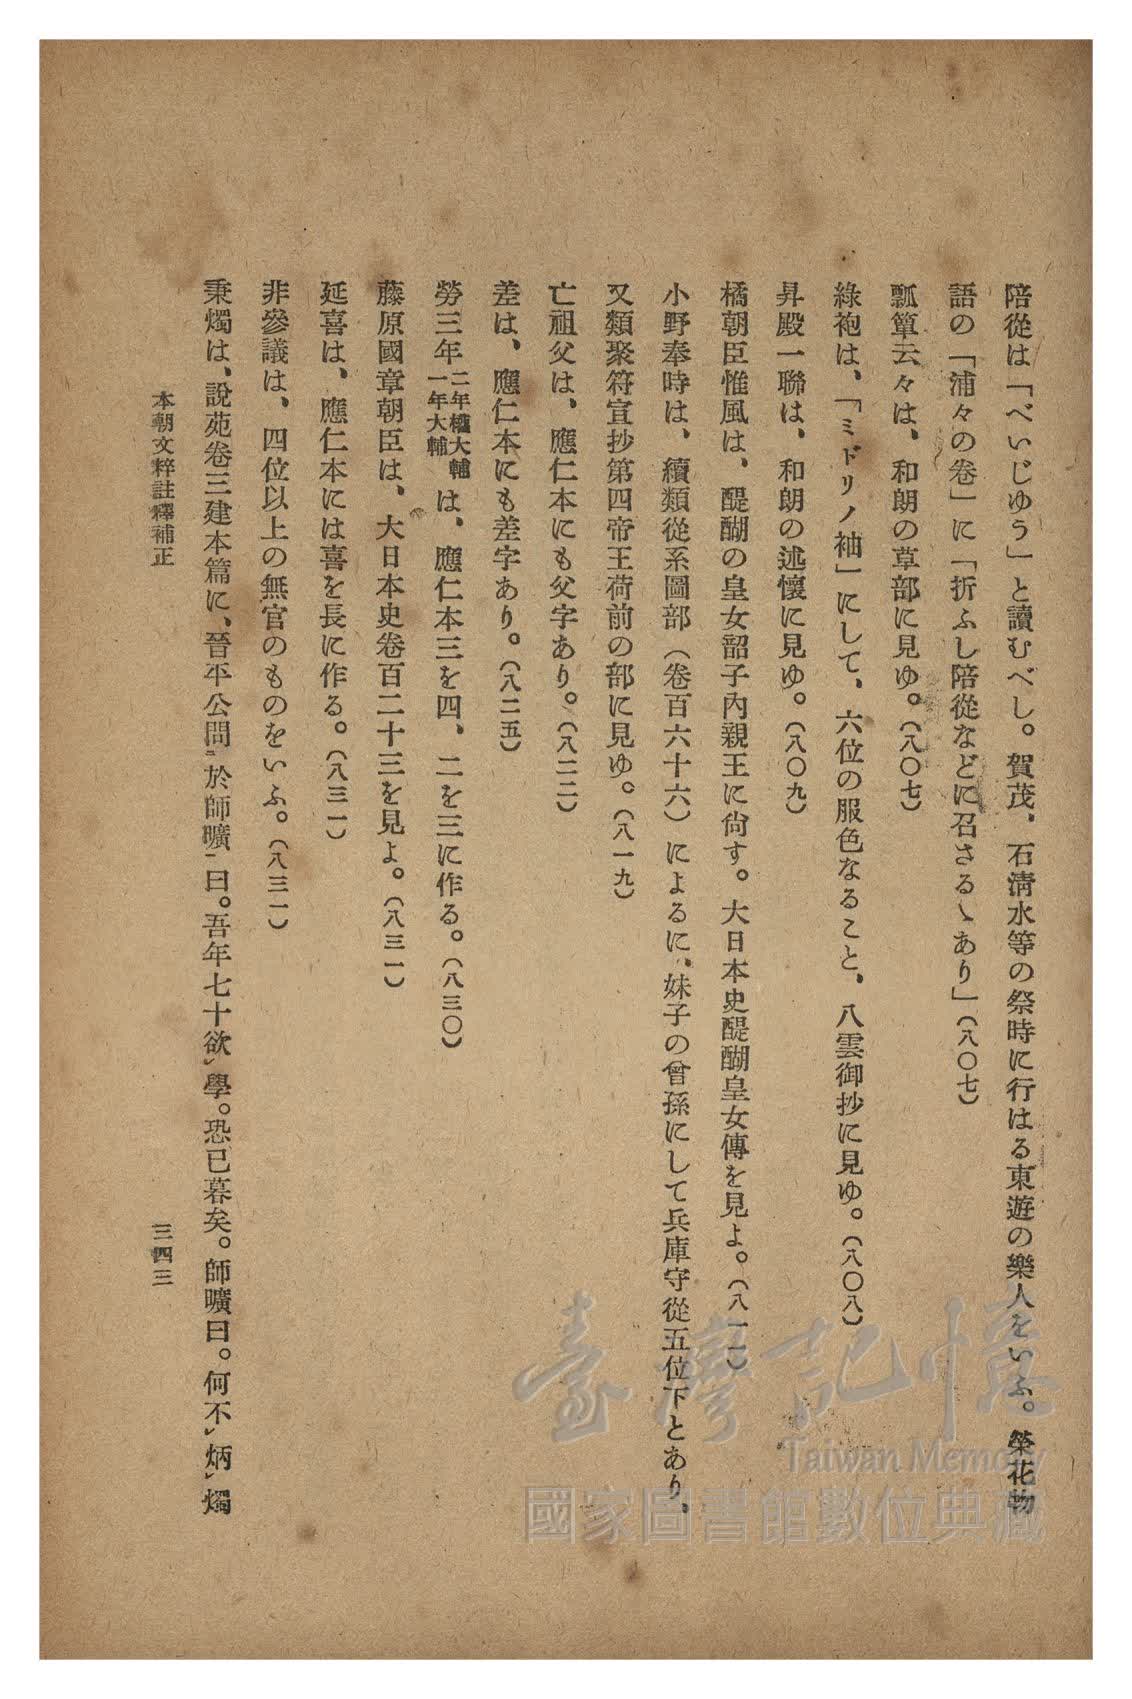 陪從は「べいじゆう」と讀むべし。賀茂、石淸水等の祭時に行はる東遊の樂人をいふ。榮花物
語の「浦々の卷」に「折ふし陪從などに召さるゝあり」（八〇七）
瓢簞云々は、和朗の草部に見ゆ。（八〇七）
綠袍は、「ミドリノ袖」にして、六位の服色なること、八雲御抄に見ゆ。（八〇八）
昇殿一聯は、和朗の述懷に見ゆ。（八〇九）
橘朝臣惟風は、醍醐の皇女韶子內親王に尙す。大日本史醍醐皇女傳を見よ。（八一一）
小野奉時は、續類從系圖部（卷百六十六）によるに、妹子の曾孫にして兵庫守從五位下とあり、
又類聚符宣抄第四帝王荷前の部に見ゆ。（八一九）
亡祖父は、應仁本にも父字あり。（八二二）
差は、應仁本にも差字あり。（八二五）
勞三年二年權大輔一年大輔は、應仁本三を四、二を三に作る。（八三〇）
藤原國章朝臣は、大日本史卷百二十三を見よ。（八三一）
延喜は、應仁本には喜を長に作る。（八三一）
非參議は、四位以上の無官のものをいふ。（八三一）
秉燭は、說苑卷三建本篇に、晉平公問二於師曠一曰。吾年七十欲レ學。恐已暮矣。師曠曰。何不レ炳レ燭
本朝文粹註釋補正
三四三
臺灣記憶
Taiwan Memory
國家圖書館數位典藏